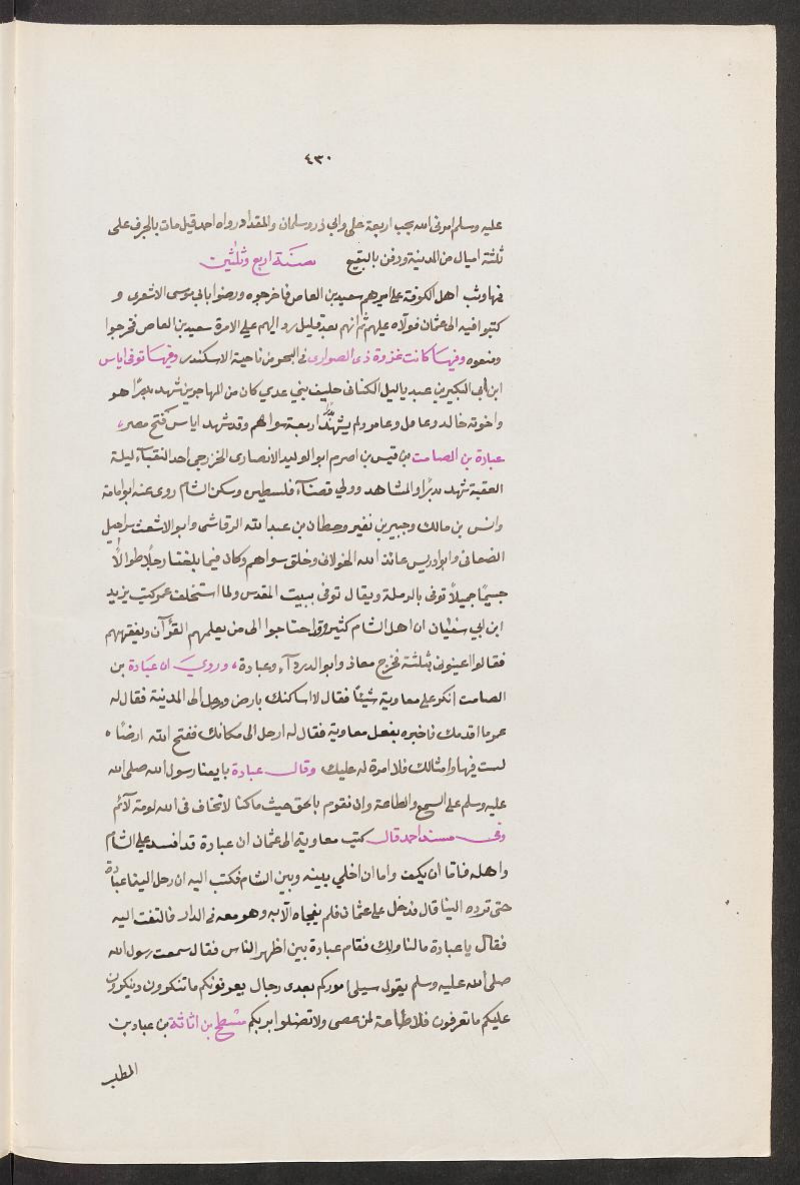 ٤٣٠
عليه وسلم امرنى الله بحب اربعة على وابي ذر وسلمان والمقداد رواه احمد قيل مات بالجرف على
ثلثة اميال من المدينة ودفن بالبقيع سنة اربع وثلثين
فيها وثب اهل الكوفة على اميرهم سعيد بن العاص فاخرجوه ورضوا بابي موسى الاشعرى و
كتبوا فيه الى عثمان فولاه عليهم ثم انهم بعد قليل رد اليهم على الامرة سعيد بن العاص فخرجوا
ومنعوه وفيها كانت غزوة ذى الصوارى فى البحر من ناحية الاسكندر وفيها توفى اياس
ابن أبى البكير بن عبد ياليل الكنانى حليف بني عدي كان من المهاجرين شهد بدرًا هو
واخوته خالد وعامل وعامر ولم يشهد بدرًا اربعة سواهم وقد شهد اياس فتح مصر،
عبادة بن الصامت بن قيس بن اصرم ابو الوليد الانصارى الخزرجى احد النقبآء ليلة
العقبة شهد بدرًا والمشاهد وولي قضآء فلسطين وسكن الشام روى عنه ابوامامة
وانس بن مالك وجبير بن نفير وحطان بن عبد الله الرقاشى وابو الاشعث شراحيل
الصنعانى وابوادريس عائذ الله الخولانى وخلق سواهم وكان فيما بلغنا رجلًا طوالًا
جسيمًا جميلًا توفى بالرملة ويقال توفى ببيت المقدس ولما استخلف عمر كتب يزيد
ابن ابي سفيان ان اهل الشام كثير واحتاجوا الى من يعلمهم القرآن ويفقههم
فقال اعينونى بثلثة فخرج معاذ وابو الدردآء وعبادة، وروي ان عبادة بن
الصامت انكر على معاوية شيئًا فقال لا اساكنك بارض ورحل الى المدينة فقال له
عمر ما اقدمك فاخبره بفعل معاوية فقال له ارحل الى مكانك فقبح الله ارضًا
لست فيها وامثالك فلا امرة له عليك وقال عبادة بايعنا رسول الله صلى الله
عليه وسلم على السمع والطاعة وان نقوم بالحق حيث ما كنا لا نخاف فى الله لومة لآئم
وفى مسند احمد قال كتب معاوية الى عثمان ان عبادة قد افسد على الشام
واهله فاما ان يكف واما ان اخلي بينه وبين الشام فكتب اليه ان رحل الينا عبادة
حتى ترده الينا قال فدخل على عثمان فلم يفجاه الا به وهو معه فى الدار فالتفت اليه
فقال يا عبادة مالنا ولك فقام عبادة بين اظهر الناس فقال سمعت رسول الله
صلى الله عليه وسلم يقول سيلى اموركم بعدى رجال يعرفونكم ما تنكرون وينكرون
عليكم ما تعرفون فلا طاعة لمن عصى ولا تضلوا بربكم مسطح بن اثاثة بن عباد بن
المطلب